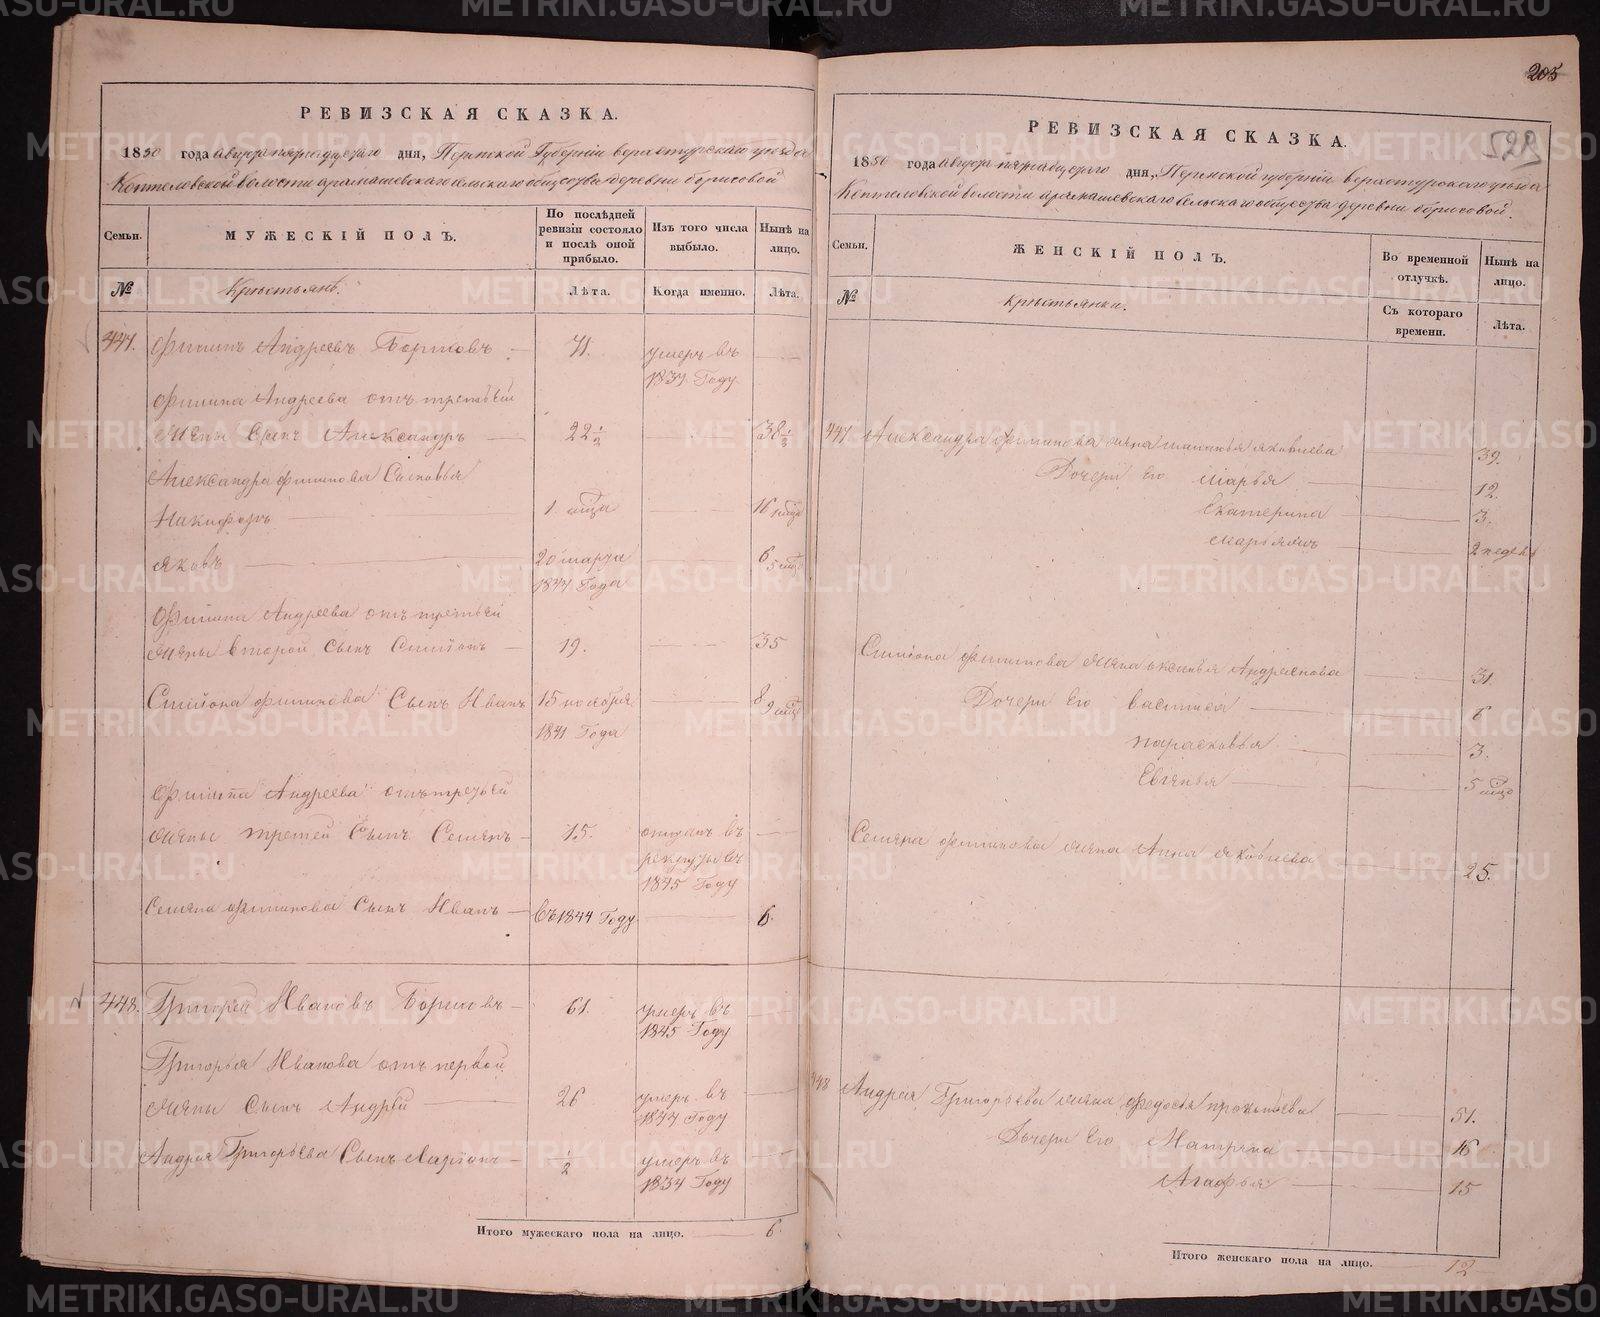 205
522
РЕВИЗСКАЯ СКАЗКА.
1850 года Августа пятнадцатаго дня, Пермской Губерніи верхотурскаго уѣзда
Коптеловской волости арамашевскаго сельскаго общества деревни борисовой
Семьи. МУЖЕСКІЙ ПОЛЪ. По послѣдней ревизіи состояло и послѣ оной прибыло. Изъ того числа выбыло. Нынѣ на лицо.
№ Крестьянъ. Лѣта. Когда именно. Лѣта.
447. Филипъ Андреевъ 71. умеръ въ
1837 Году
Филипа Андреева отъ третьей
жены Сынъ Александръ 22 1/2 38 1/2
Александра Филипова Сыновья
Никифоръ 1 16
Яковъ 20 марта 6
1844 Года
Филипа Андреева отъ третьей
жены второй Сынъ 19. 35
Филипова Сынъ Иванъ 15 ноября 8
1841 Года
Филипа Андреева отъ третьей
жены третей Сынъ Семенъ 15. отданъ въ
рекруты въ
1845 Году
Семена Филипова Сынъ Иванъ въ 1844 Году 6.
448. Григорей Ивановъ 61. умеръ въ
1845 Году
Григорья Иванова отъ первой
жены Сынъ Андрей 26 умеръ въ
1844 Году
Андрея Григорьева Сынъ Ларіонъ 1/2 умеръ въ
1834 Году
Итого мужескаго пола на лицо. 6.
РЕВИЗСКАЯ СКАЗКА.
1850 года августа пятнадцатаго дня, Пермской губерніи верхотурскаго уѣзда
Коптеловской волости арамашевскаго сельскаго общества деревни борисовой.
Семьи. ЖЕНСКІЙ ПОЛЪ. Во временной отлучкѣ. Нынѣ на лицо.
№ Крестьянки. Съ котораго времени. Лѣта.
447 Александра Филипова жена Маланья Яковлева 39.
Дочери Его Марья 12.
Екатерина 3.
2 недели
Филипова жена Андреянова 31.
Дочери Его Василиса 6
Парасковья 3.
Евгенья 5
Семена Филипова жена Анна Яковлева 25.
448 Андрея Григорьева жена Федосья прокопьева 51.
Дочери Его Матрена 16
Агафья 15
Итого женскаго пола на лицо. 12
METRIKI.GASO-URAL.RU